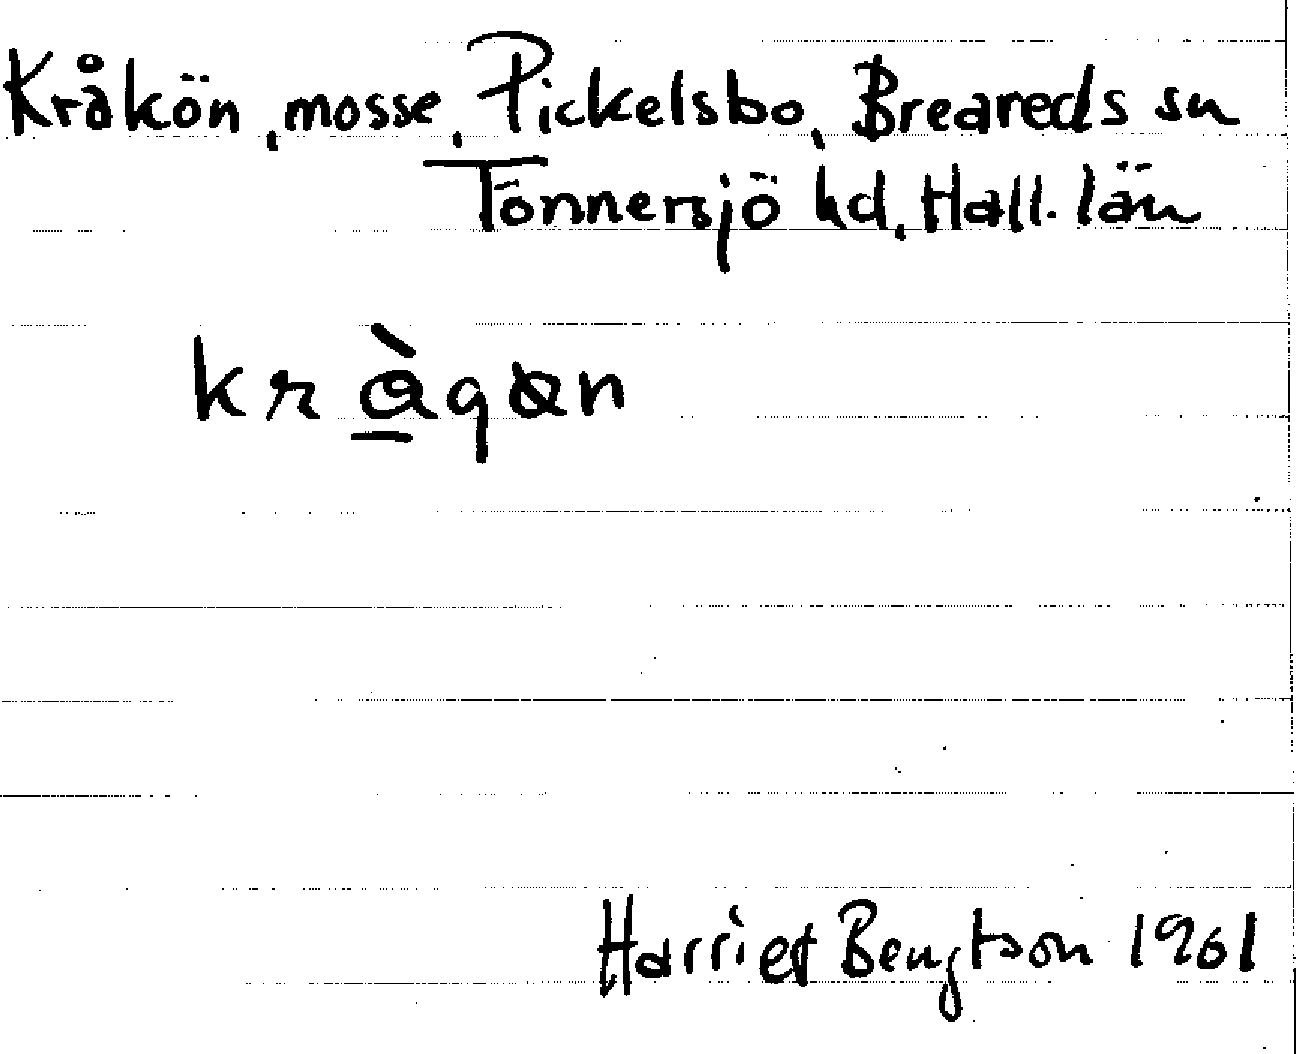 Kråkön, mosse, Pickelsbo, Breareds sn
Tönnersjö hd, Hall. län
Harriet Bengtson 1961